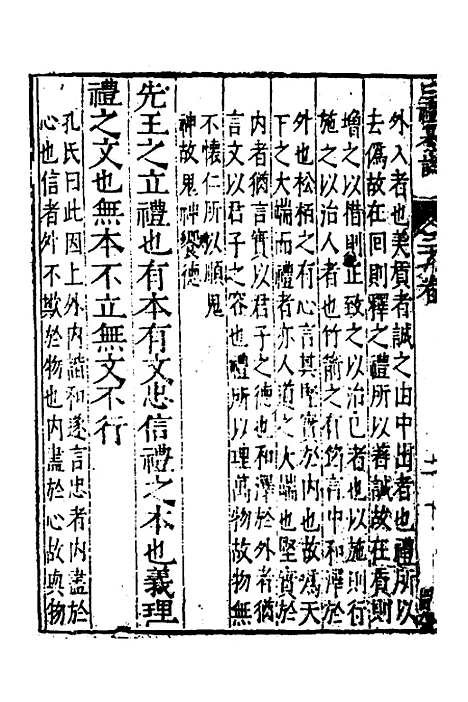 外入者也美質者誠之由中出者也禮所以
去僞故在回則釋之禮所以善誠故在質則
增之以措則正致之以治己者也以施則行
施之以治人者也竹箭之有筠言中和澤於
外也松柏之有心言其堅實於內也故爲天
下之大端而禮者亦人道之大端也堅實於
內者猶言質以君子之德也和澤於外者猶
言文以君子之容也禮所以理萬物故物無
不懷仁所以順鬼
神故鬼神饗德
先王之立禮也有本有文忠信禮之本也義理
禮之文也無本不立無文不行
孔氏曰此因上外內諧和遂言忠者內盡於
心也信者外不欺於物也內盡於心故與物